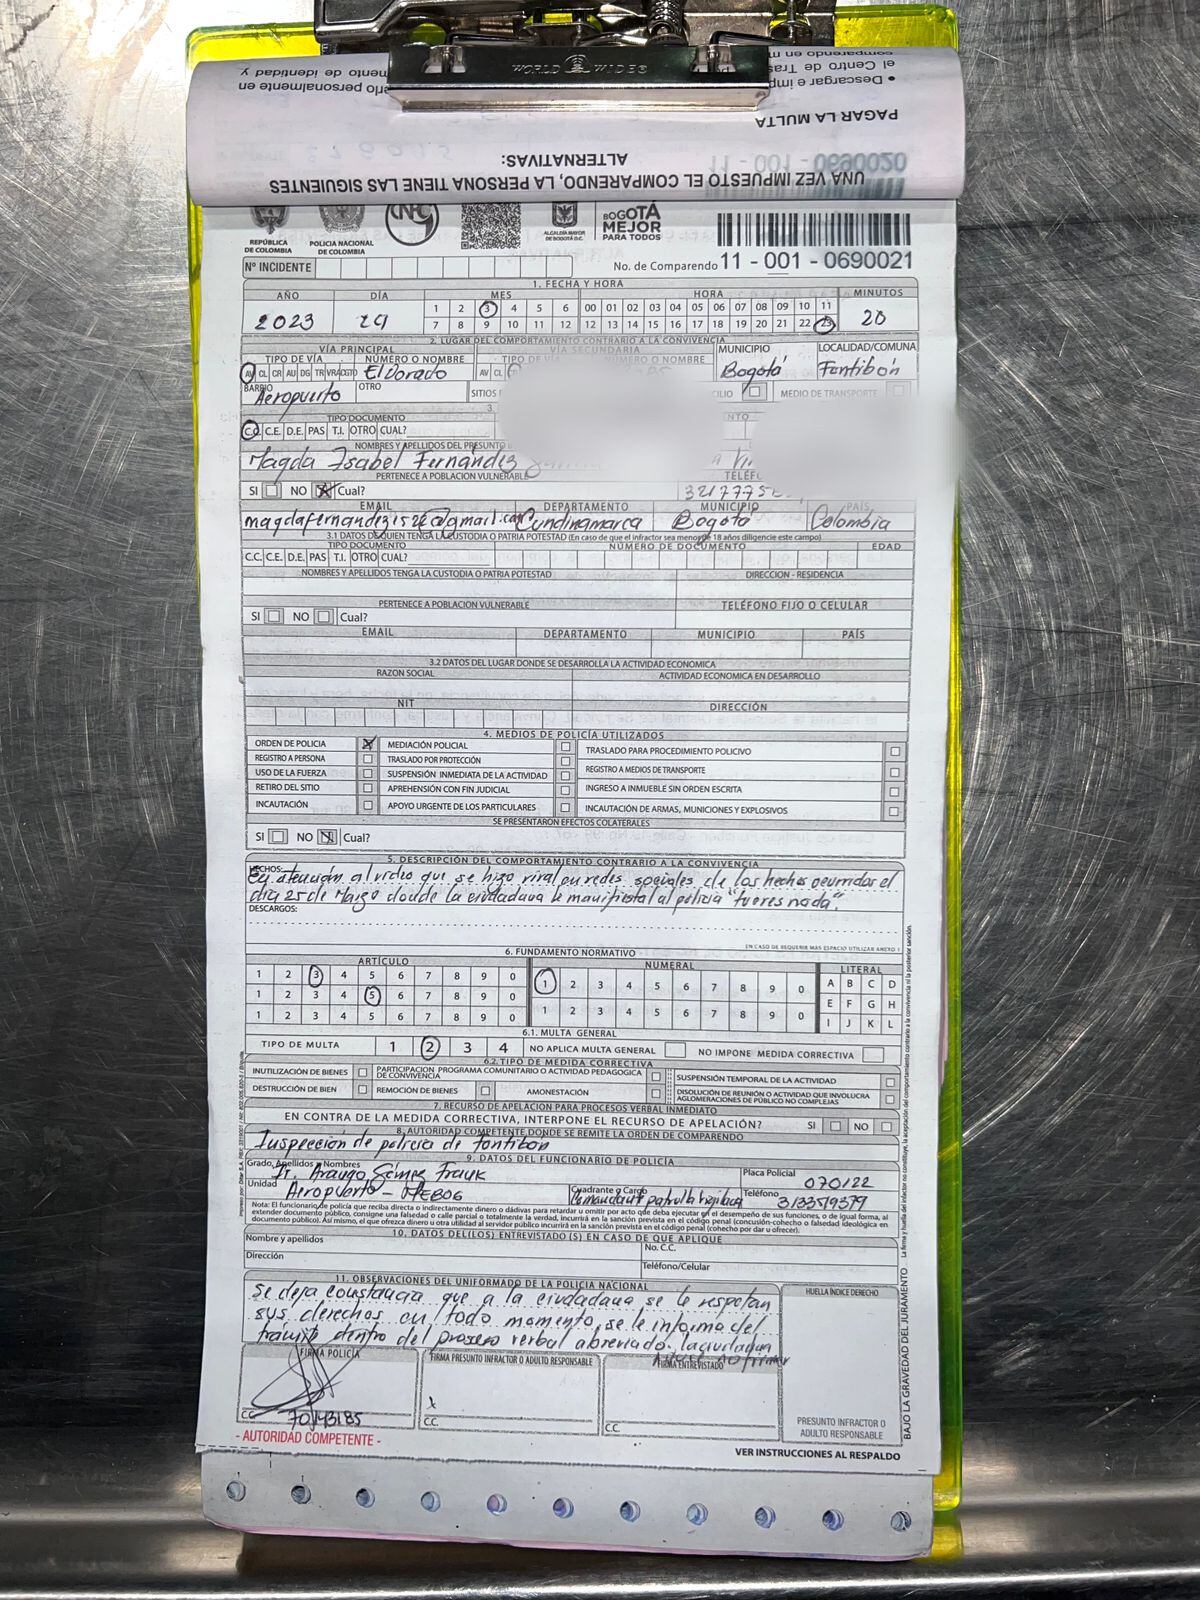 WORLD WIDE
comparendo en m
el Centro de Tras
• Descargar e imp
rlo personalmente en
mento de identidad y
PAGAR LA MULTA
ALTERNATIVAS:
UNA VEZ IMPUESTO EL COMPARENDO, LA PERSONA TIENE LAS SIGUIENTES
11 - 001 - 0690020
REPÚBLICA DE COLOMBIA
POLICIA NACIONAL DE COLOMBIA
ALCALDÍA MAYOR DE BOGOTÁ D.C.
BOGOTÁ MEJOR PARA TODOS
Nº INCIDENTE
No. de Comparendo 11 - 001 - 0690021
1. FECHA Y HORA
AÑO DÍA MES HORA MINUTOS
1 2 3 4 5 6 00 01 02 03 04 05 06 07 08 09 10 11
2023 29 7 8 9 10 11 12 12 13 14 15 16 17 18 19 20 21 22 23 20
2. LUGAR DEL COMPORTAMIENTO CONTRARIO A LA CONVIVENCIA
VÍA PRINCIPAL VÍA SECUNDARIA MUNICIPIO LOCALIDAD/COMUNA
TIPO DE VÍA NÚMERO O NOMBRE TIPO DE VÍA NÚMERO O NOMBRE
AV CL CR AU DG TR VRA CGTO El Dorado AV CL Bogotá Fontibón
BARRIO Aeropuerto OTRO SITIOS CILIO MEDIO DE TRANSPORTE
3.
TIPO DOCUMENTO NTO
C.C. C.E. D.E. PAS T.I. OTRO CUAL?
NOMBRES Y APELLIDOS DEL PRESUNTO
Magda Isabel Fernández
PERTENECE A POBLACION VULNERABLE TELÉF
SI NO X Cual? 3217775
EMAIL DEPARTAMENTO MUNICIPIO PAÍS
magdafernandez1522@gmail.com Cundinamarca Bogotá Colombia
3.1 DATOS DE QUIEN TENGA LA CUSTODIA O PATRIA POTESTAD (En caso de que el infractor sea menor de 18 años diligencie este campo)
TIPO DOCUMENTO NÚMERO DE DOCUMENTO EDAD
C.C. C.E. D.E. PAS T.I. OTRO CUAL?
NOMBRES Y APELLIDOS TENGA LA CUSTODIA O PATRIA POTESTAD DIRECCION - RESIDENCIA
PERTENECE A POBLACION VULNERABLE TELÉFONO FIJO O CELULAR
SI NO Cual?
EMAIL DEPARTAMENTO MUNICIPIO PAÍS
3.2 DATOS DEL LUGAR DONDE SE DESARROLLA LA ACTIVIDAD ECONOMICA
RAZON SOCIAL ACTIVIDAD ECONOMICA EN DESARROLLO
NIT DIRECCIÓN
4. MEDIOS DE POLICÍA UTILIZADOS
ORDEN DE POLICIA X MEDIACIÓN POLICIAL TRASLADO PARA PROCEDIMIENTO POLICIVO
REGISTRO A PERSONA TRASLADO POR PROTECCIÓN REGISTRO A MEDIOS DE TRANSPORTE
USO DE LA FUERZA SUSPENSIÓN INMEDIATA DE LA ACTIVIDAD
RETIRO DEL SITIO APREHENSIÓN CON FIN JUDICIAL INGRESO A INMUEBLE SIN ORDEN ESCRITA
INCAUTACIÓN APOYO URGENTE DE LOS PARTICULARES INCAUTACIÓN DE ARMAS, MUNICIONES Y EXPLOSIVOS
SE PRESENTARON EFECTOS COLATERALES
SI NO X Cual?
5. DESCRIPCIÓN DEL COMPORTAMIENTO CONTRARIO A LA CONVIVENCIA
HECHOS: En atención al video que se hizo viral en redes sociales de los hechos ocurridos el
día 25 de Marzo donde la ciudadana le manifiesta al policía "tu eres nada".
DESCARGOS:
EN CASO DE REQUERIR MAS ESPACIO UTILIZAR ANEXO 1
6. FUNDAMENTO NORMATIVO
ARTÍCULO NUMERAL LITERAL
1 2 3 4 5 6 7 8 9 0 1 2 3 4 5 6 7 8 9 0 A B C D
1 2 3 4 5 6 7 8 9 0 E F G H
1 2 3 4 5 6 7 8 9 0 1 2 3 4 5 6 7 8 9 0 I J K L
6.1. MULTA GENERAL
TIPO DE MULTA 1 2 3 4 NO APLICA MULTA GENERAL NO IMPONE MEDIDA CORRECTIVA
6.2. TIPO DE MEDIDA CORRECTIVA
INUTILIZACIÓN DE BIENES PARTICIPACION PROGRAMA COMUNITARIO O ACTIVIDAD PEDAGOGICA DE CONVIVENCIA SUSPENSIÓN TEMPORAL DE LA ACTIVIDAD
DESTRUCCIÓN DE BIEN REMOCIÓN DE BIENES AMONESTACIÓN DISOLUCIÓN DE REUNIÓN O ACTIVIDAD QUE INVOLUCRA AGLOMERACIONES DE PÚBLICO NO COMPLEJAS
7. RECURSO DE APELACION PARA PROCESOS VERBAL INMEDIATO
EN CONTRA DE LA MEDIDA CORRECTIVA, INTERPONE EL RECURSO DE APELACIÓN? SI NO
8. AUTORIDAD COMPETENTE DONDE SE REMITE LA ORDEN DE COMPARENDO
Inspección de policía de fontibón
9. DATOS DEL FUNCIONARIO DE POLICÍA
Grado, Apellidos y Nombres It. Araugo Gómez Frank Placa Policial 070122
Unidad Aeropuerto - MEBOG Cuadrante o Cargo Comandante patrulla vigilancia Teléfono 3133519379
Nota: El funcionario de policía que reciba directa o indirectamente dinero o dádivas para retardar u omitir por acto que deba ejecutar en el desempeño de sus funciones, o de igual forma, al
extender documento público, consigne una falsedad o calle parcial o totalmente la verdad, incurrirá en la sanción prevista en el código penal (concusión-cohecho o falsedad ideológica en
documento público). Así mismo, el que ofrezca dinero u otra utilidad al servidor público incurrirá en la sanción prevista en el código penal (cohecho por dar u ofrecer).
10. DATOS DEL(LOS) ENTREVISTADO (S) EN CASO DE QUE APLIQUE
Nombre y apellidos No. C.C.
Dirección Teléfono/Celular
11. OBSERVACIONES DEL UNIFORMADO DE LA POLICIA NACIONAL HUELLA ÍNDICE DERECHO
Se deja constancia que a la ciudadana se le respetan
sus derechos en todo momento, se le informa del
tramite dentro del proceso verbal abreviado. la ciudadana
no firmar
FIRMA POLICÍA FIRMA PRESUNTO INFRACTOR O ADULTO RESPONSABLE FIRMA ENTREVISTADO
x
C.C. 70143185 C.C. C.C. PRESUNTO INFRACTOR O ADULTO RESPONSABLE
- AUTORIDAD COMPETENTE -
VER INSTRUCCIONES AL RESPALDO
BAJO LA GRAVEDAD DEL JURAMENTO